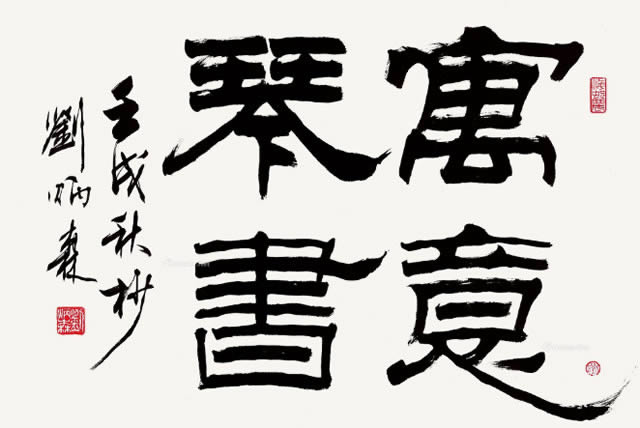 寓意
琴書
壬戌秋杪
劉炳森